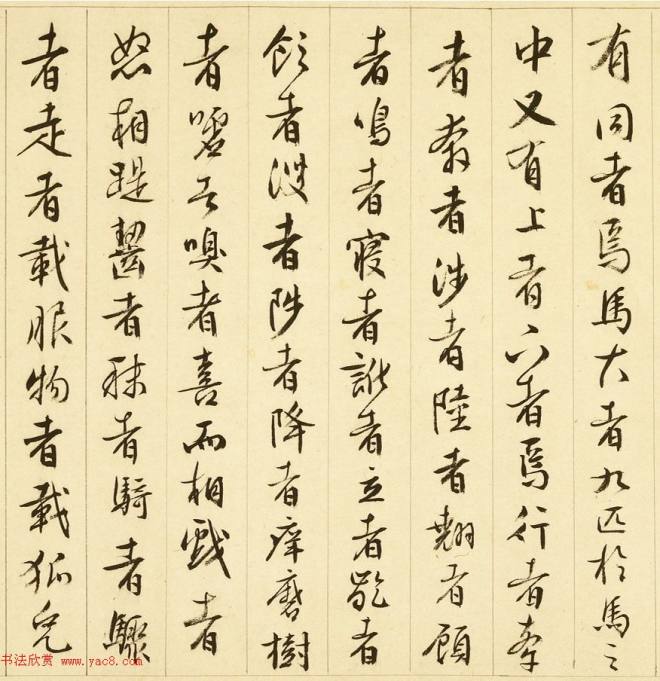 有同者焉馬大者九匹於馬之
中又有上者下者焉行者牽
者奔者涉者陸者翹者顧
者鳴者寢者訛者立者齕者
飲者溲者陟者降者痒磨樹
者噓者嗅者喜而相戲者
怒相踶齧者秣者騎者驟
者走者載服物者載狐兔
书法欣赏 www.yac8.com